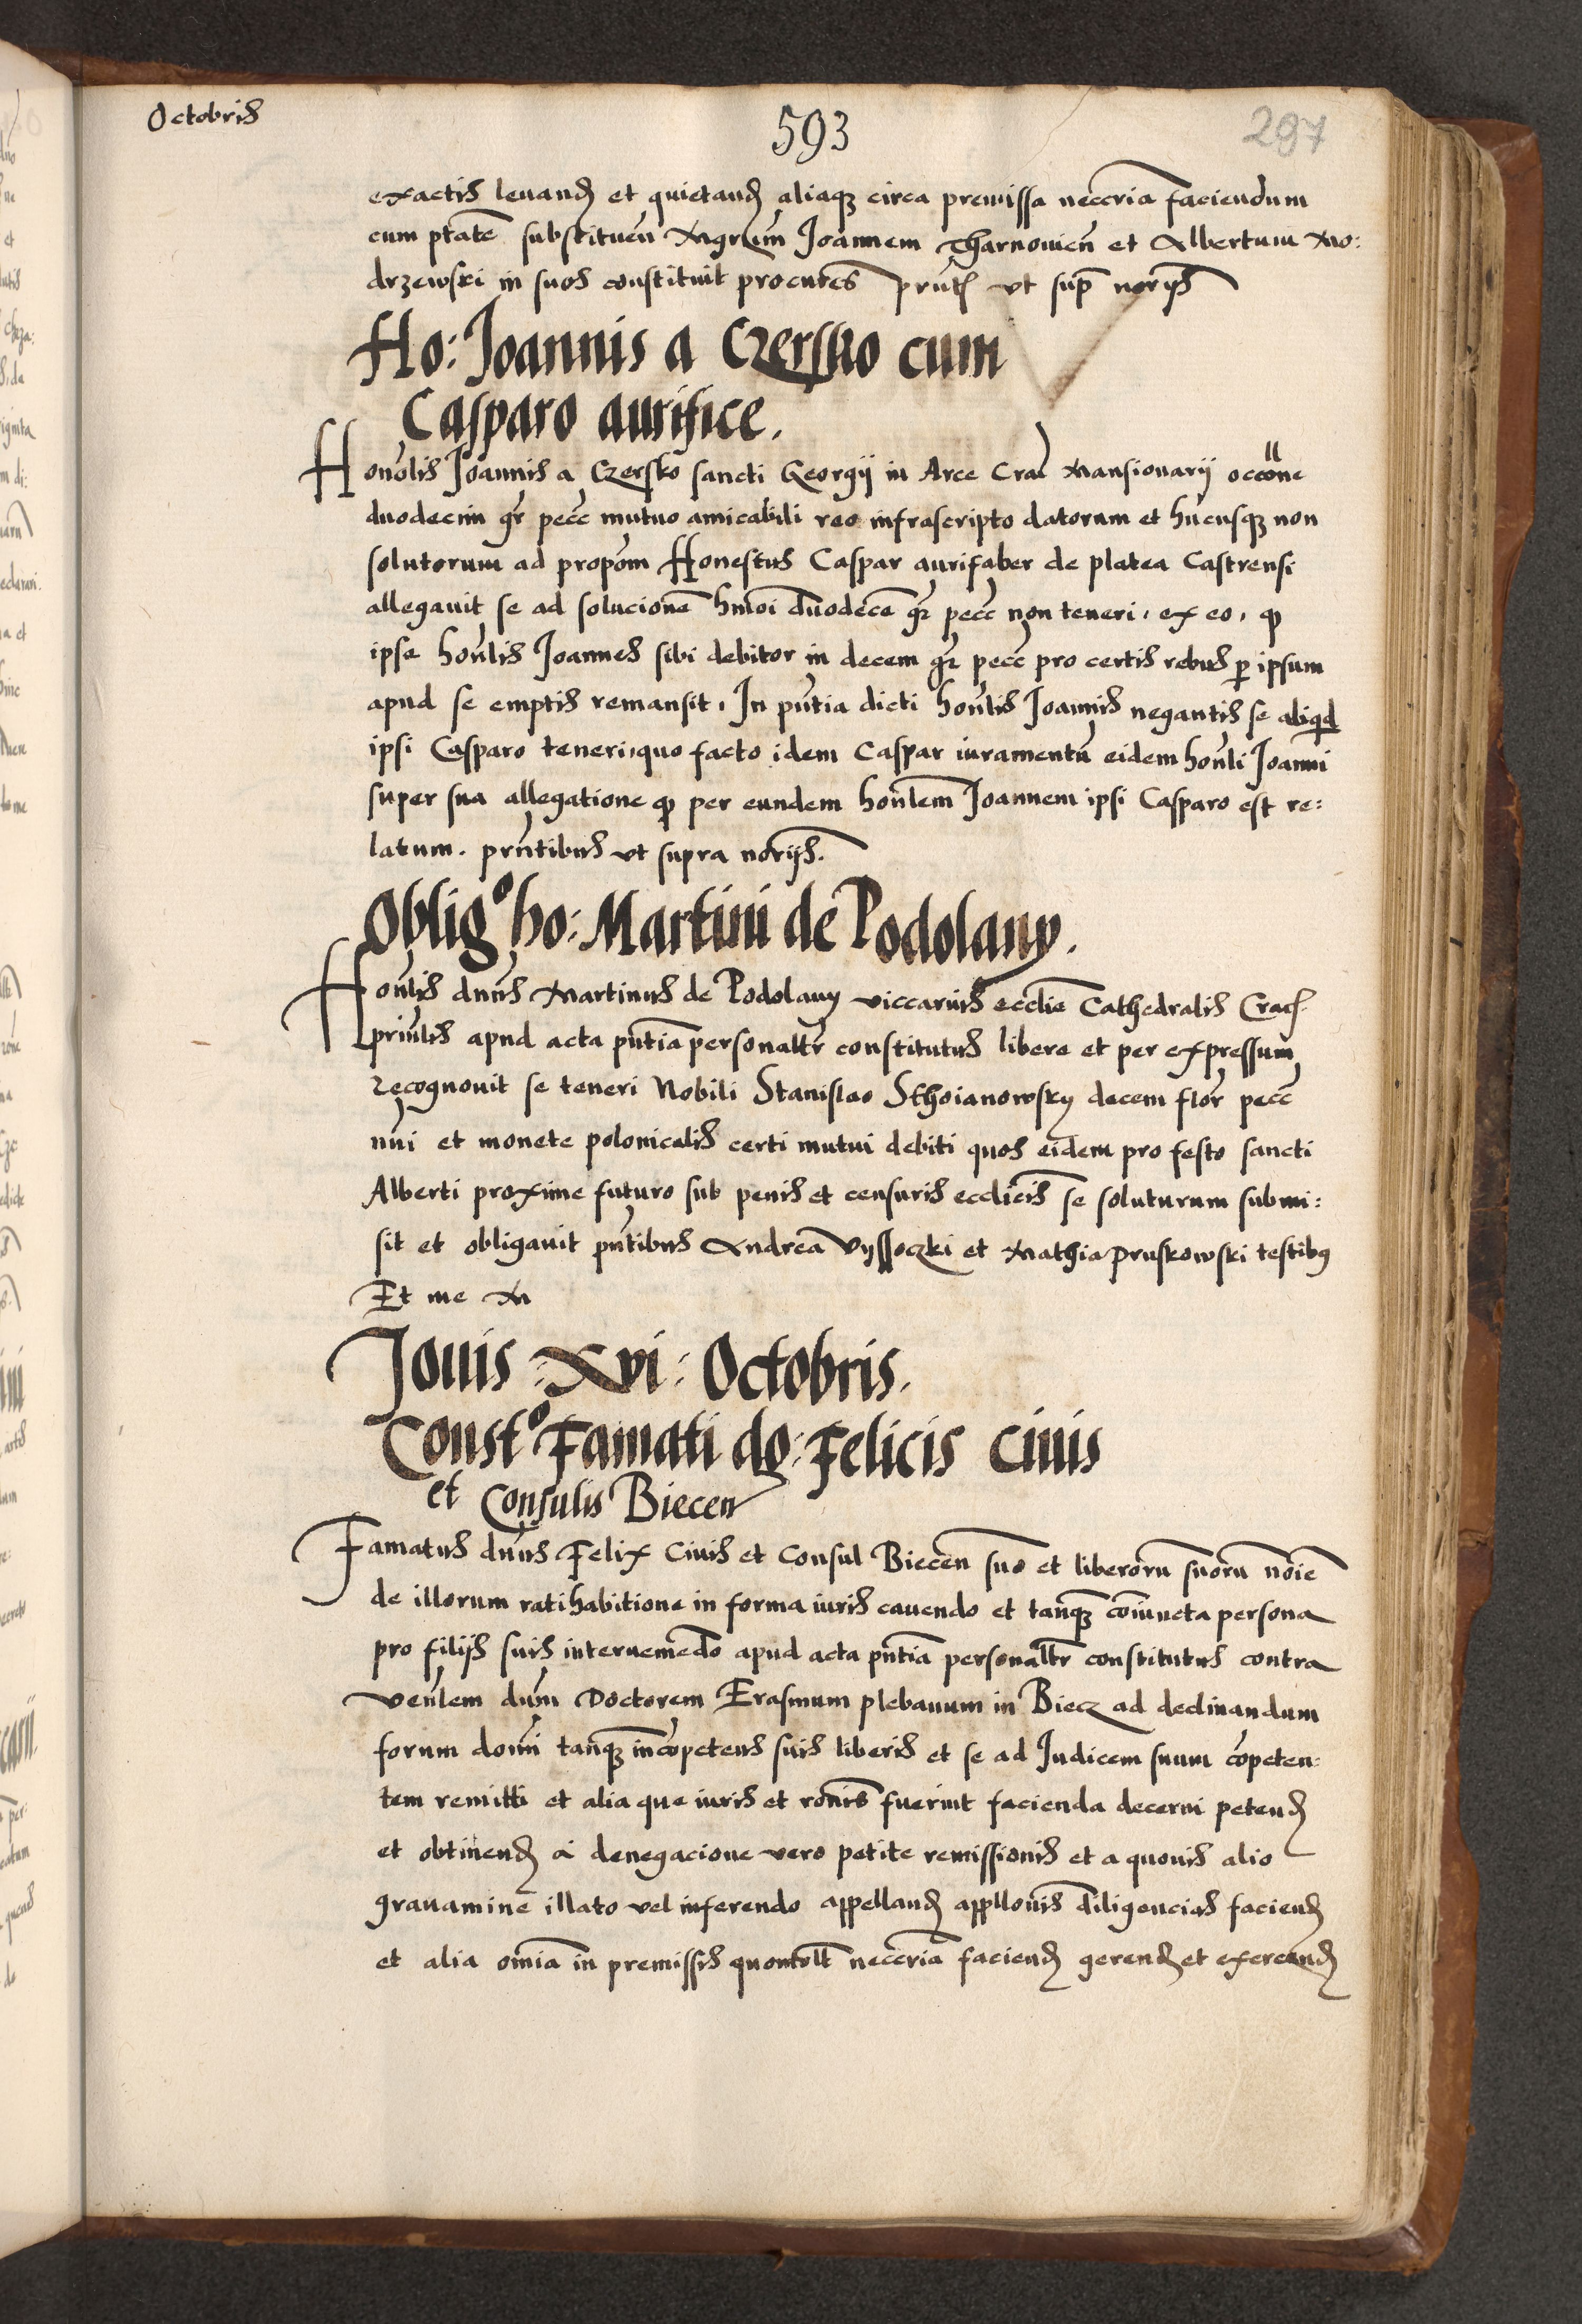 Octobris
593
297
exactis levand et quietand aliaqz circa premissa neccria faciendum
cum ptate substituen Mgrum Joannem Tharnovien et Albertum Mo:
drzewski in suos constituit procutes prntz ut sup norijs
Ho: Joannis a Czersko cum
Casparo aurifice.
Honolis Joannis a Czersko sancti Georgij in Arce Crac Mansionarij occone
duodecim gr pecc mutuo amicabili reo infrascripto datorum et hucusqz non
solutorum ad propom Honestus Caspar aurifaber de platea Castrensi
allegavit se ad solucione hmoi duodece gr pecc non teneri, ex eo, q
ipse honlis Joannes sibi debitor in decem gr pecc pro certis rebus p ipsum
apud se emptis remansit, In pntia dicti honlis Joannis negantis se aliqd
ipsi Casparo teneri, quo facto idem Caspar iuramentu eidem honli Joanni
super sua allegatione q per eundem honlem Joannem ipsi Casparo est re:
latum. prntibus ut supra norijs.
Oblig° ho: Martini de Podolany.
Honlis dnus Martinus de Podolany viccarius ecclie Cathedralis Crac
prinlis apud acta pntia personaltr constitutus libere et per expressum
recognovit se teneri Nobili Stanislao Sthoianowsky decem flor pecc
nui et monete polonicalis certi mutui debiti quos eidem pro festo sancti
Alberti proxime futuro sub penis et censuris ecclicis se soluturum submi:
sit et obligavit pntibus Andrea Vyssoczki et Mathia Pruskowski testibus
Et me M
Jovis XVI: Octobris.
Const° Famati do: Felicis Civis
et Consulis Biecen
Famatus dnus Felix Civis et Consul Biecen suo et liberoru suoru noie
de illorum ratihabitione in forma iuris cavendo et tanqz coniuncta persona
pro filijs suis interveniendo apud acta pntia personaltr constitutus contra
venlem dnm Doctorem Erasmum plebanum in Biecz ad declinandum
forum domi tanqz incopetens suis liberis et se ad Judicem suum copeten:
tem remitti et alia que iuris et ronis fuerint facienda decerni petend
et obtinend a denegacione vero petite remissionis et a quovis alio
gravamine illato vel inferendo appelland appllonis diligencias faciend
et alia omia in premissis quomolt neccria faciend gerend et exercend